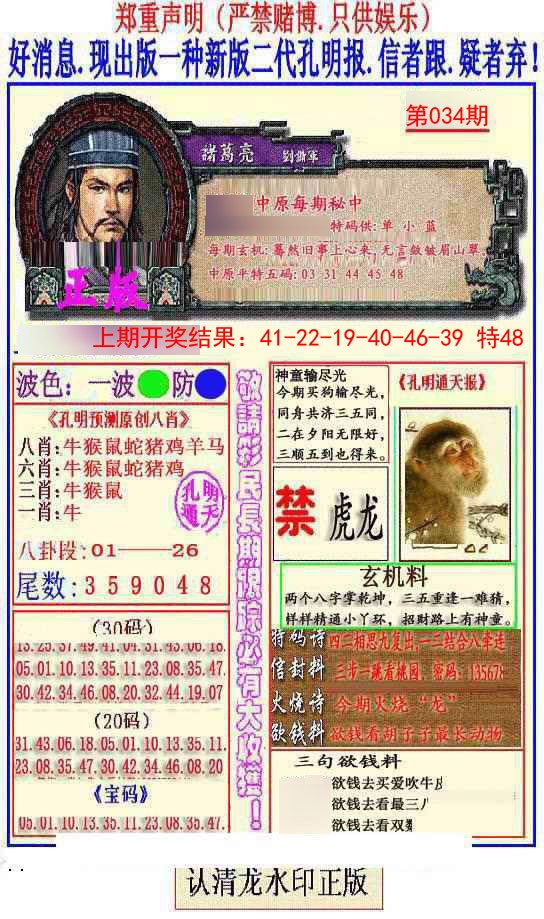 郑重声明（严禁赌博.只供娱乐）
好消息.现出版一种新版二代孔明报.信者跟.疑者弃!
第034期
諸葛亮 劉錦軍
中原每期秘中
特码供: 单 小 蓝
每期玄机: 蓦然旧事上心来, 无言敛皱眉山翠。
中原平特五码: 03 31 44 45 48
正版
上期开奖结果：41-22-19-40-46-39 特48
波色：一波 防
《孔明预测原创八肖》
八肖: 牛猴鼠蛇猪鸡羊马
六肖: 牛猴鼠蛇猪鸡
三肖: 牛猴鼠
一肖: 牛
孔明通天
八卦段: 01——26
尾数: 3 5 9 0 4 8
(30码)
13.25.37.49.41.04.31.43.06.18
05.01.10.13.35.11.23.08.35.47
30.42.34.46.08.20.32.44.19.07
(20码)
31.43.06.18.05.01.10.13.35.11
23.08.35.47.30.42.34.46.08.20
《宝码》
05.01.10.13.35.11.23.08.35.47
敬請彩民長期跟踪必有大收獲！
神童输尽光
今期买狗输尽光，
同舟共济三五同，
二在夕阳无限好，
三顺五到也得来。
《孔明通天报》
禁 虎龙
玄机料
两个八字掌乾坤，三五重逢一难猜，
样样精通小丫环，招财路上有神童。
特码诗 四二相思九复出,一二结合八牵连
信封料 三步一跳看桃园，密码：135678
火烧诗 今期火烧“龙”
欲钱料 欲钱看胡子子最长动物
三句欲钱料
欲钱去买爱吹牛
欲钱去看最三
欲钱去看双
认清龙水印正版